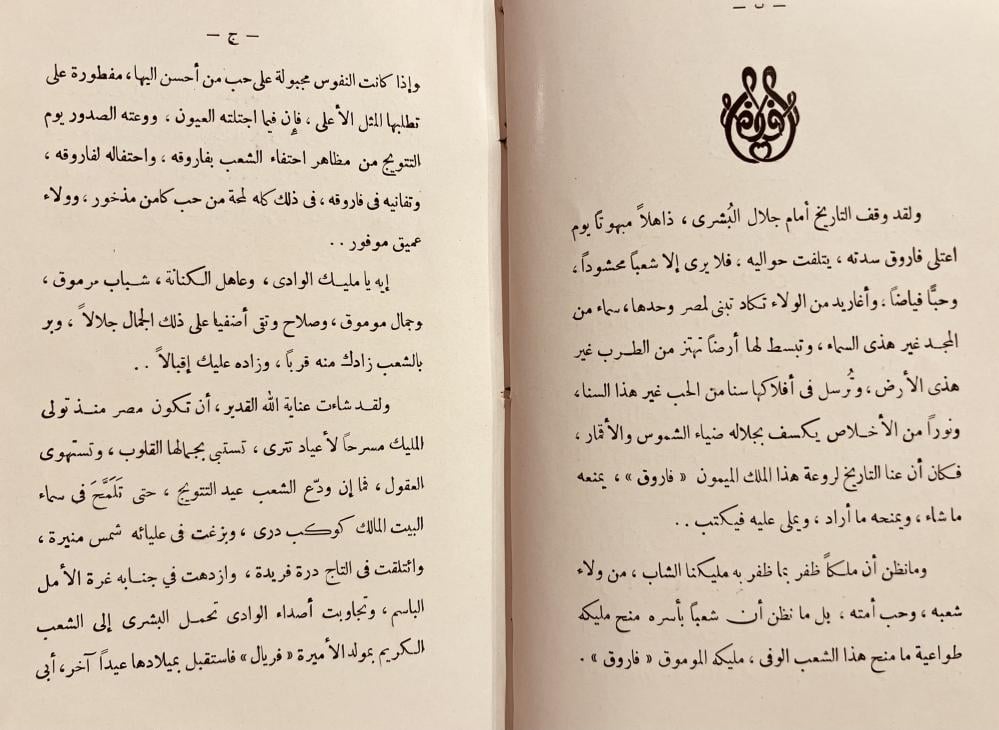 — ب —
ولقد وقف التاريخ أمام جلال البُشرى ، ذاهلاً مبهوتاً يوم
اعتلى فاروق سدته ، يتلفت حواليه ، فلا يرى إلا شعباً محشوداً ،
وحبًّا فياضاً ، وأغاريد من الولاء تكاد تبنى لمصر وحدها، سماء من
المجد غير هذى السماء ، وتبسط لها أرضاً تهتز من الطرب غير
هذى الأرض ، وتُرسل فى أفلاكها سنا من الحب غير هذا السنا ،
ونوراً من الأخلاص يكسف بجلاله ضياء الشموس والأقمار ،
فكان أن عنا التاريخ لروعة هذا الملك الميمون « فاروق » ، يمنعه
ما شاء ، ويمنحه ما أراد ، ويملى عليه فيكتب . .
ومانظن أن ملكاً ظفر بما ظفر به مليكنا الشاب ، من ولاء
شعبه ، وحب أمته ، بل ما نظن أن شعباً بأسره منح مليكه
طواعية ما منح هذا الشعب الوفى ، مليكه الموموق « فاروق » .
— ج —
وإذا كانت النفوس مجبولة على حب من أحسن اليها ، مفطورة على
تطلبها المثل الأعلى ، فإن فيما اجتلته العيون ، ووعته الصدور يوم
التتويج من مظاهر احتفاء الشعب بفاروقه ، واحتفاله لفاروقه ،
وتفانيه فى فاروقه ، فى ذلك كله لمحة من حب كامن مذخور ، وولاء
عميق موفور . .
إيه يا مليك الوادى ، وعاهل الكنانة ، شباب مرموق ،
وجمال موموق ، وصلاح وتقى أضفيا على ذلك الجمال جلالاً ، وبر
بالشعب زادك منه قرباً ، وزاده عليك إقبالاً . .
ولقد شاءت عناية الله القدير ، أن تكون مصر منذ تولى
المليك مسرحاً لأعياد تترى ، تستبى بجمالها القلوب ، وتستهوى
العقول ، فما إن ودّع الشعب عيد التتويج ، حتى تَلَمَّحَ فى سماء
البيت المالك كوكب درى ، وبزغت فى عليائه شمس منيرة ،
وائتلقت فى التاج درة فريدة ، وازدهت في جنابه غرة الأمل
الباسم ، وتجاوبت أصداء الوادى تحمل البشرى إلى الشعب
الكريم بمولد الأميرة « فريال » فاستقبل بميلادها عيداً آخر ، أبى